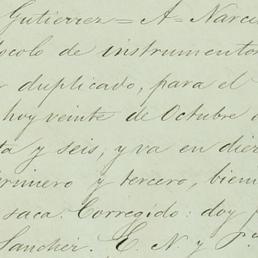 Gutierrez = A = Narci
ocolo de instrumento
duplicado, para el
hoy veinte de Octubre
ta y seis, y va en die
rimero y tercero, bien
saca. Corregido: doy f
Sanchez. E. N. y